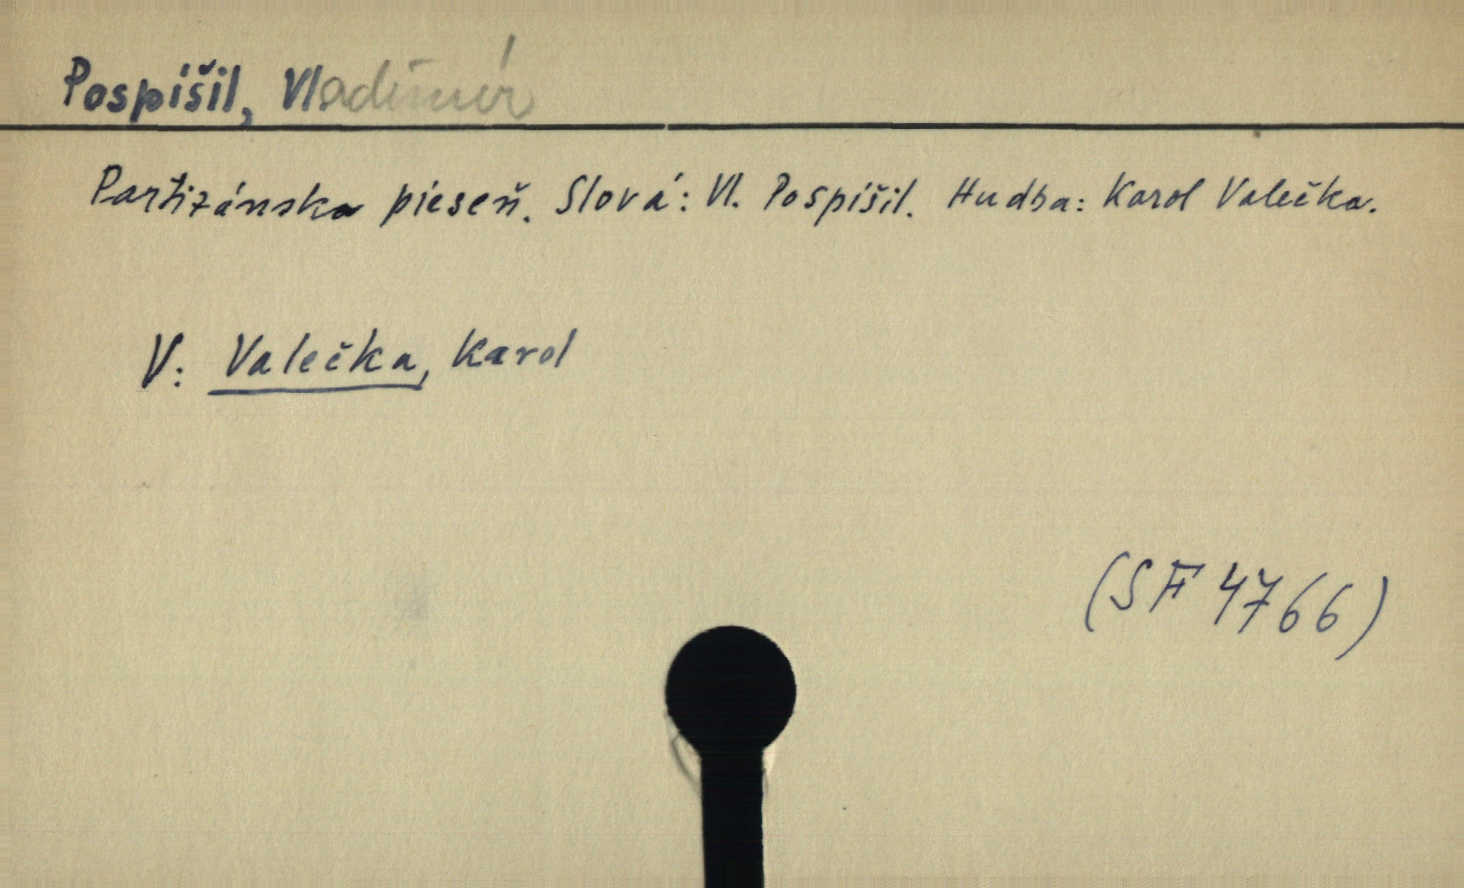 Pospíšil, Vladimír
Partizánska pieseň. Slová: Vl. Pospíšil. Hudba: Karol Valečka.
V: Valečka, Karol
(SF 4766)